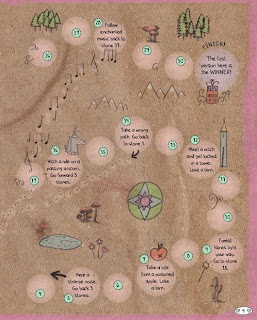 28
Follow
enchanted
music back to
stone 17.
27
26
29
30
FINISH!
The first
person here is
the WINNER!
16
Hitch a ride on a
passing unicorn.
Go forward 3
stones.
17
14
Take a wrong
path. Go back
to stone 7.
13
12
Meet a witch and
get locked
in a tower.
Lose a turn.
11
10
9
Forest
fairies light
your way.
Go to stone
15.
8
7
Take a bite
from a poisoned
apple. Lose
a turn.
6
5
Hear a
strange noise.
Go back 3
stones.
4